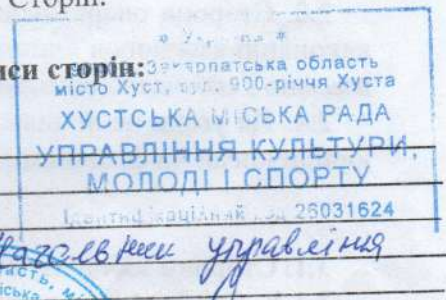 Сторін.
* Україна *
иси сторін:
Закарпатська область
місто Хуст, вул. 900-річчя Хуста
ХУСТСЬКА МІСЬКА РАДА
УПРАВЛІННЯ КУЛЬТУРИ,
МОЛОДІ І СПОРТУ
Ідентифікаційний код 26031624
Начальник управління